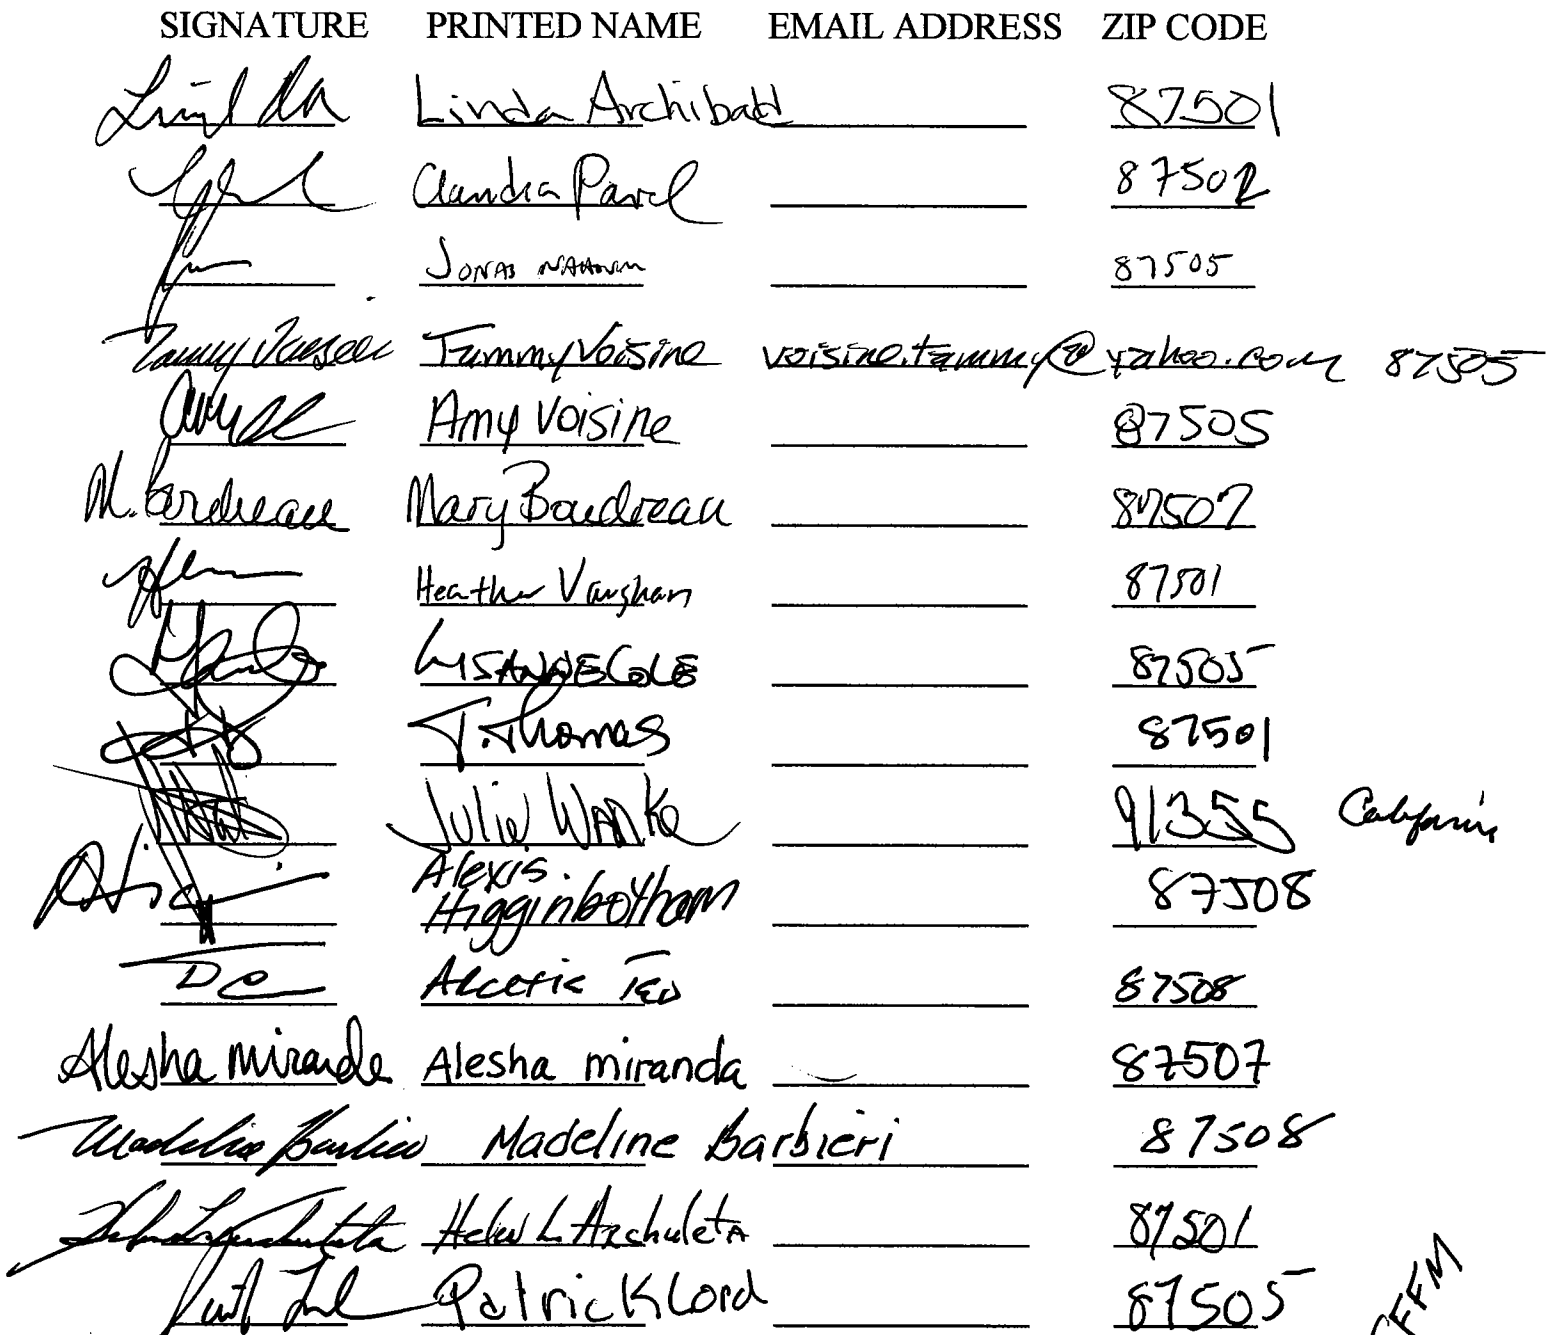 SIGNATURE PRINTED NAME EMAIL ADDRESS ZIP CODE
Linda Archibald 87501
Claudia Pavel 87502
JONAS 87505
Tammy Voisine Tammy Voisine voisine.tammy@yahoo.com 87505
Amy Voisine 87505
M. Boudreau Mary Boudreau 87507
Heather Vaughan 87501
LISANNE COLE 87505
T. Thomas 87501
Julie Wanke 91355 California
Alexis
Higginbotham 87508
87508
Alesha miranda Alesha miranda 87507
Madeline Barbieri Madeline Barbieri 87508
Helen L Archuleta Helen L. Archuleta 87501
Patrick Lord 87505